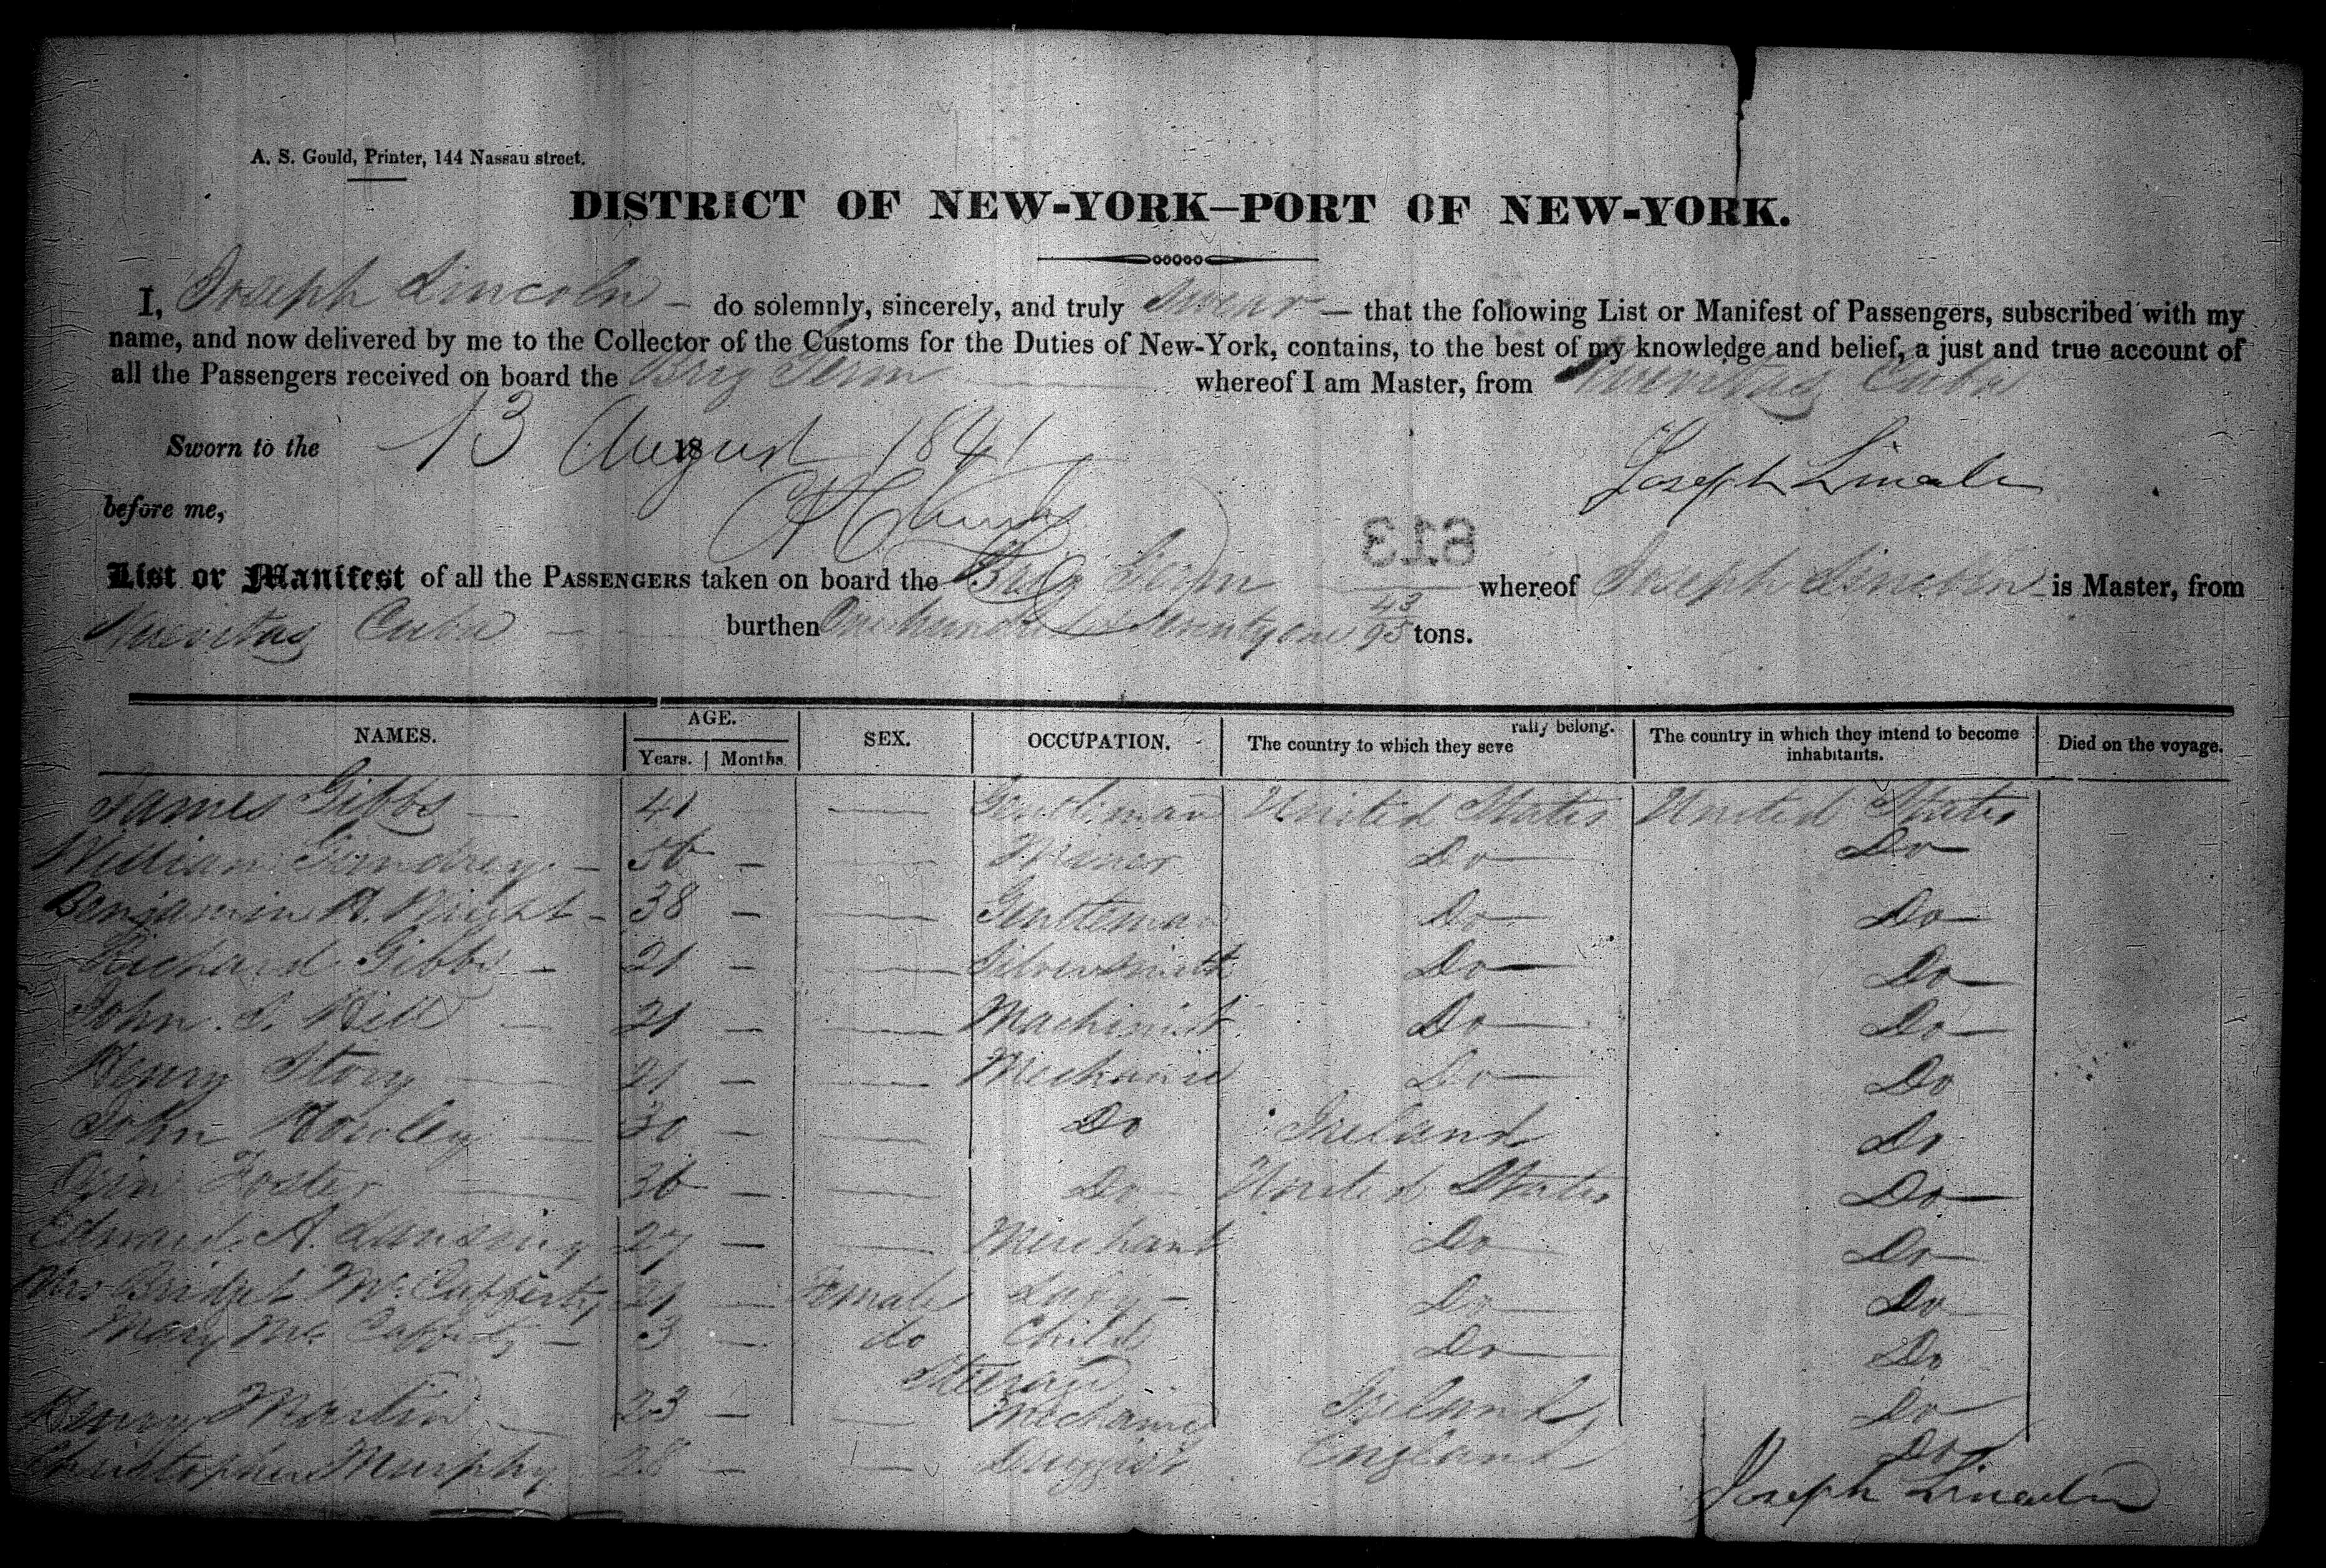 A. S. Gould, Printer, 144 Nassau street.
DISTRICT OF NEW-YORK—PORT OF NEW-YORK.
I, Joseph Lincoln — do solemnly, sincerely, and truly swear — that the following List or Manifest of Passengers, subscribed with my
name, and now delivered by me to the Collector of the Customs for the Duties of New-York, contains, to the best of my knowledge and belief, a just and true account of
all the Passengers received on board the Brig whereof I am Master, from Nuevitas Cuba
Sworn to the 13 August 18 1841
Joseph Lincoln
before me,
613
List or Manifest of all the PASSENGERS taken on board the Brig whereof Joseph Lincoln is Master, from
Nuevitas Cuba — burthen One hundred & Seventy one 43/95 tons.
NAMES. AGE. SEX. OCCUPATION. The country to which they seve rally belong. The country in which they intend to become inhabitants. Died on the voyage.
Years. Months.
James Gibbs — 41 — Gentleman United States United States
William Gundrey — 56 — — Miner Do Do
Benjamin H. Wright — 38 — — Gentleman Do Do
Richard Gibbs — 21 — — Silversmith Do Do
John S. Hill — 21 — — Machinist Do Do
Henry Story — 21 — — Mechanic Do Do
John Rowley — 30 — — Do Ireland Do
Foster — 36 — — Do United States Do
Edward A. Lansing 27 — — Merchant Do Do
Mrs Bridget McCafferty 21 — Female Lady — Do Do
Mary Mc Cafferty — 3 — do Child Do Do
Steerage
Henry Martin — 23 — — Mechanic Ireland Do
Christopher Murphy 28 — — Druggist England Do
Joseph Lincoln